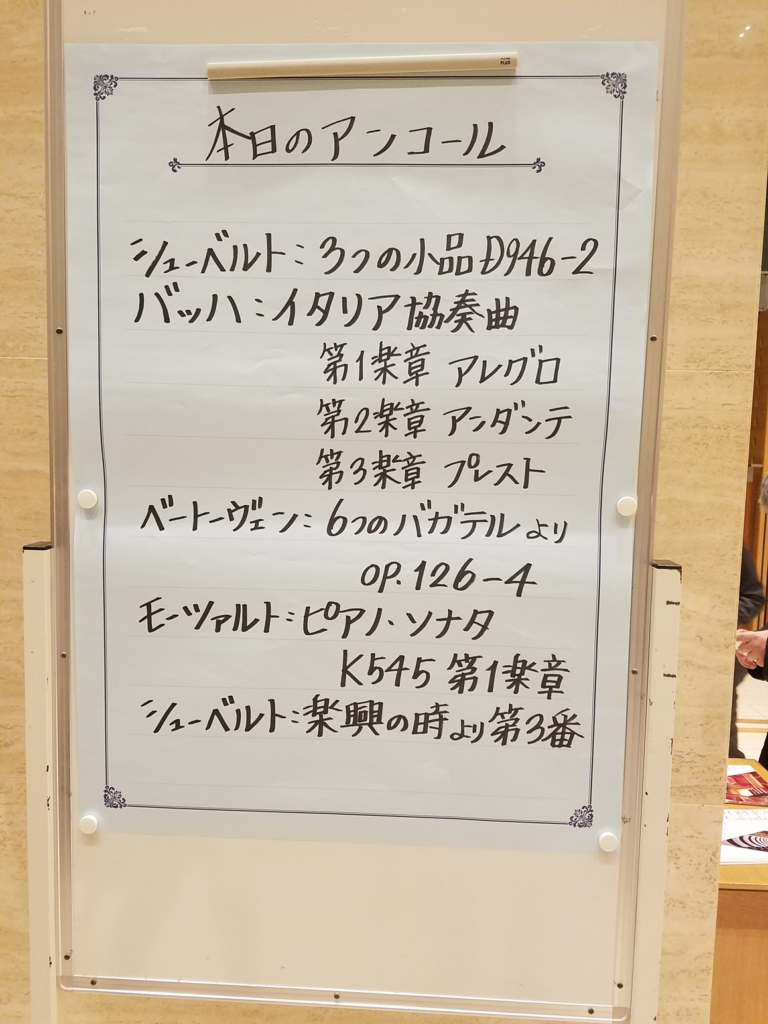 本日のアンコール
シューベルト:3つの小品 D946-2
バッハ:イタリア協奏曲
第1楽章 アレグロ
第2楽章 アンダンテ
第3楽章 プレスト
ベートーヴェン:6つのバガテルより
OP.126-4
モーツァルト:ピアノ・ソナタ
K545 第1楽章
シューベルト:楽興の時より第3番